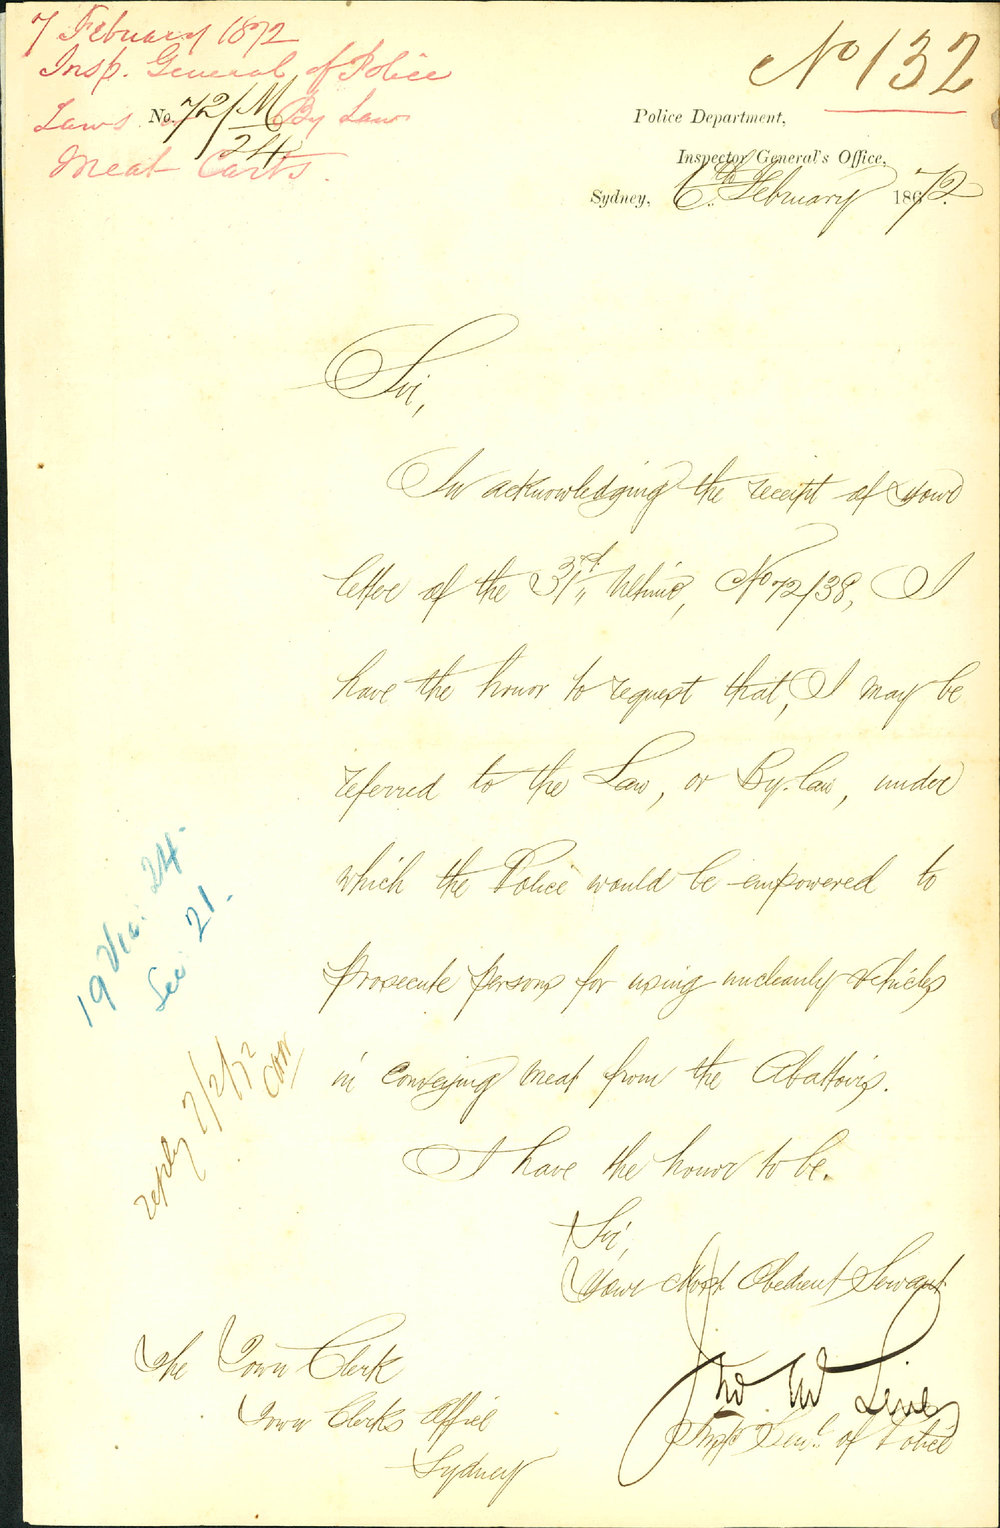 7 February 1872
Insp. General of Police
Laws No. 72/M By Law
24
Meat Carts.
No 132
Police Department,
Inspector General's Office,
Sydney, 6th February 1872.
Sir,
In acknowledging the receipt of your
letter of the 31st Ultimo, No 72/38, I
have the honor to request that, I may be
referred to the Law, or By-law, under
which the Police would be empowered to
prosecute persons for using uncleanly vehicles
in conveying meat from the Abattoirs.
I have the honor to be.
Sir,
Your Most Obedient Servant
Inspr Genl. of Police
The Town Clerk
Town Clerks Office
Sydney
19 Vic. 24.
Sec. 21.
reply 7/2/72